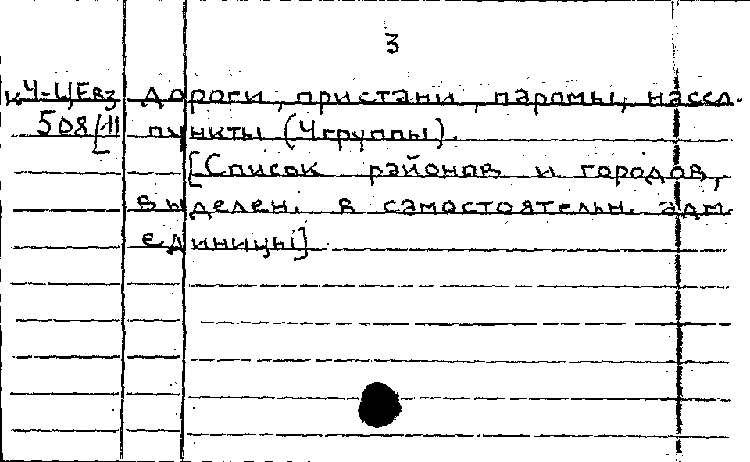 3
к Ч-Ц,Евз дороги, пристани, паромы, насел.
508[11 пункты (4группы).
[Список районов и городов,
выделен. в самостоятельн. адм.
единицы]